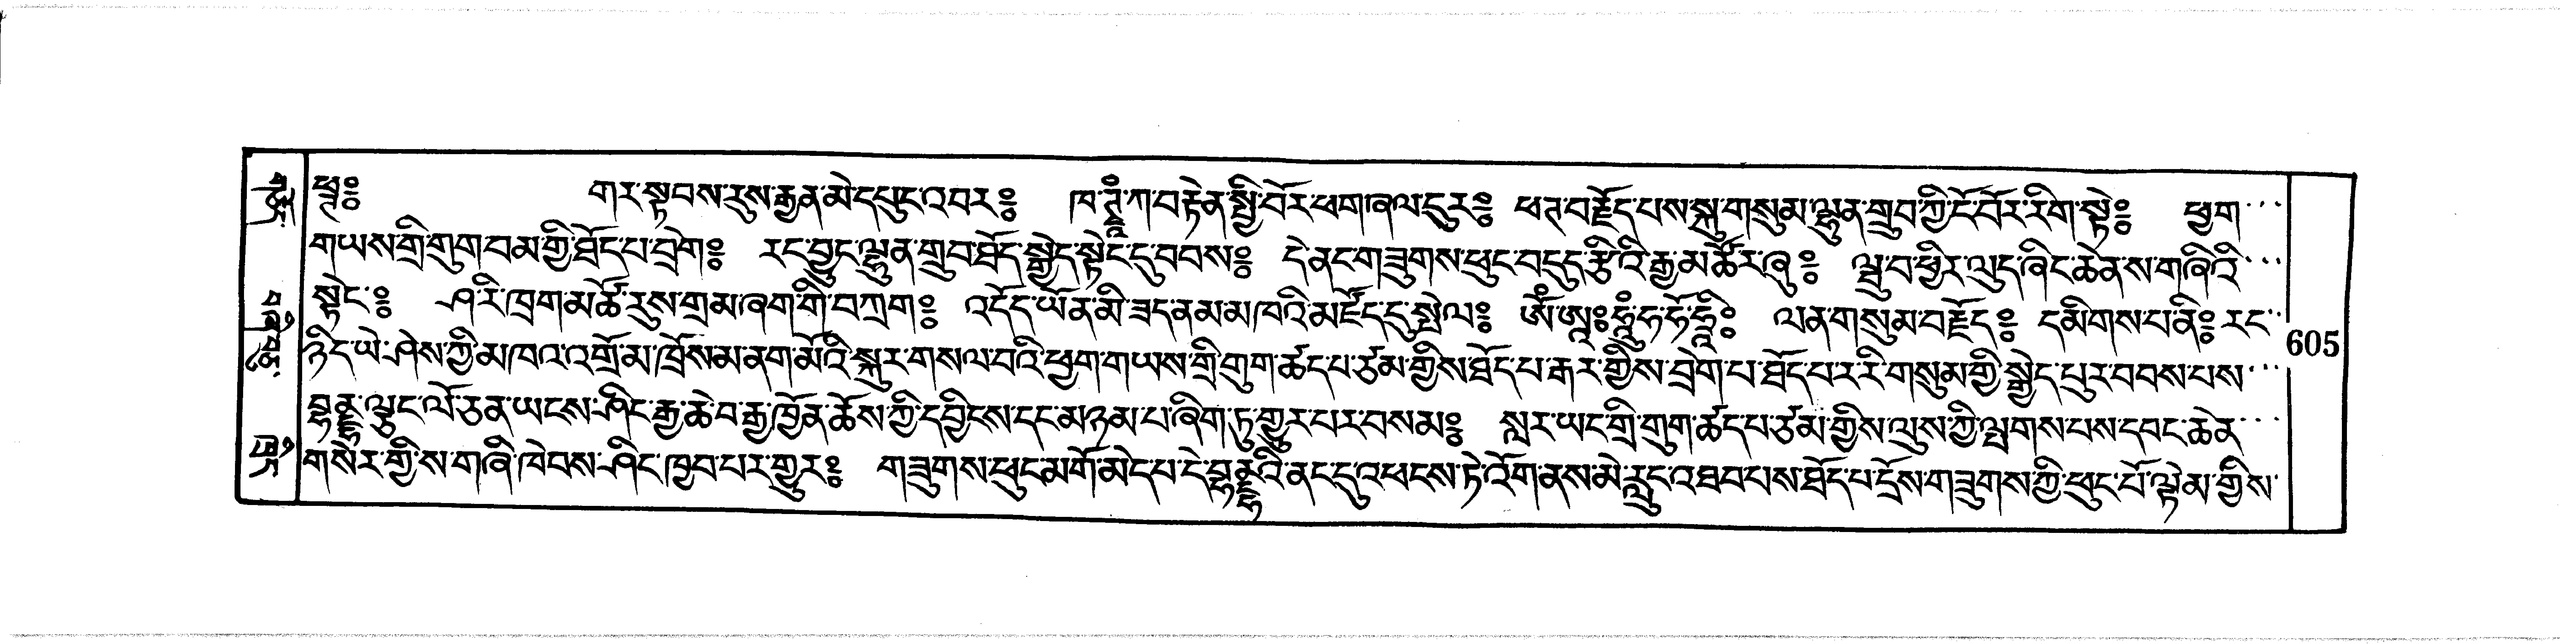 ཕཊ༔ གར་སྟབས་རུས་རྒྱན་མེ་དཔུང་འབར༔ ཁ་ཊྭཱཾ་ཀ་བརྟེན་སྤྱི་བོར་ཕག་ཞལ་ངུར༔ ཕཊ་བརྗོད་པས་སྐུ་གསུམ་ལྷུན་གྲུབ་ཀྱི་ངོ་བོར་རིག་སྟེ༔ ཕྱག་
གཡས་གྲི་གུག་བམ་གྱི་ཐོད་པ་བྲེག༔ རང་བྱུང་ལྷུན་གྲུབ་ཐོད་སྒྱེད་སྟེང་དུ་བབས༔ དེ་ནང་གཟུགས་ཕུང་བདུད་རྩི་འི་རྒྱ་མཚོར་ཞུ༔ ལྤྲུ་བ་ཕྱིར་ལུད་ཞིང་ཆེན་ས་གཞིའི་
སྟེང་༔ ཤ་རི་ཁྲག་མཚོ་རུས་གྲམ་ཞག་གི་བཀྲག༔ འདོད་ཡོན་མི་ཟད་ནམ་མཁའི་མཛོད་དུ་སྤེལ༔ ཨོཾ་ཨཱཿ་ཧཱུྃ་ཧ་ཧོ་ཧྲཱིཿ ལན་གསུམ་བརྗོད༔ དམིགས་པ་ནི༔ རང་
ཉིད་ཡེ་ཤེས་ཀྱི་མཁའ་འགྲོ་མ་ཁྲོས་མ་ནག་མོའི་སྐུར་གསལ་བའི་ཕྱག་གཡས་གྲི་གུག་ཚད་པ་ཙམ་གྱིས་ཐོད་པ་རྒར་གྱིས་བྲེག་པ་ཐོད་པ་ར་རི་གསུམ་གྱི་སྒྱེད་པུར་བབས་པས་
བྷནྡྷ་ལྷུང་ལོ་ཅན་ཡངས་ཤིང་རྒྱ་ཆེ་བ་རྒྱ་ཁྱོན་ཆོས་ཀྱི་དབྱིངས་དང་མཉམ་པ་ཞིག་ཏུ་གྱུར་པར་བསམ༔ སླར་ཡང་གྲི་གུག་ཚད་པ་ཙམ་གྱིས་ལུས་ཀྱི་ལྤགས་པས་དབང་ཆེན་
གསེར་གྱི་ས་གཞི་ཁེབས་ཤིང་ཁྱབ་པར་གྱུར༔ གཟུགས་ཕུང་མགོ་མེད་པ་དེ་བྷནྡྷའི་ནང་དུ་འཕངས་ཏེ་འོག་ནས་མེ་རླུང་འཐབ་པས་ཐོད་པ་དྲོས་གཟུགས་ཀྱི་ཕུང་པོ་ལྟེམ་གྱིས་
605